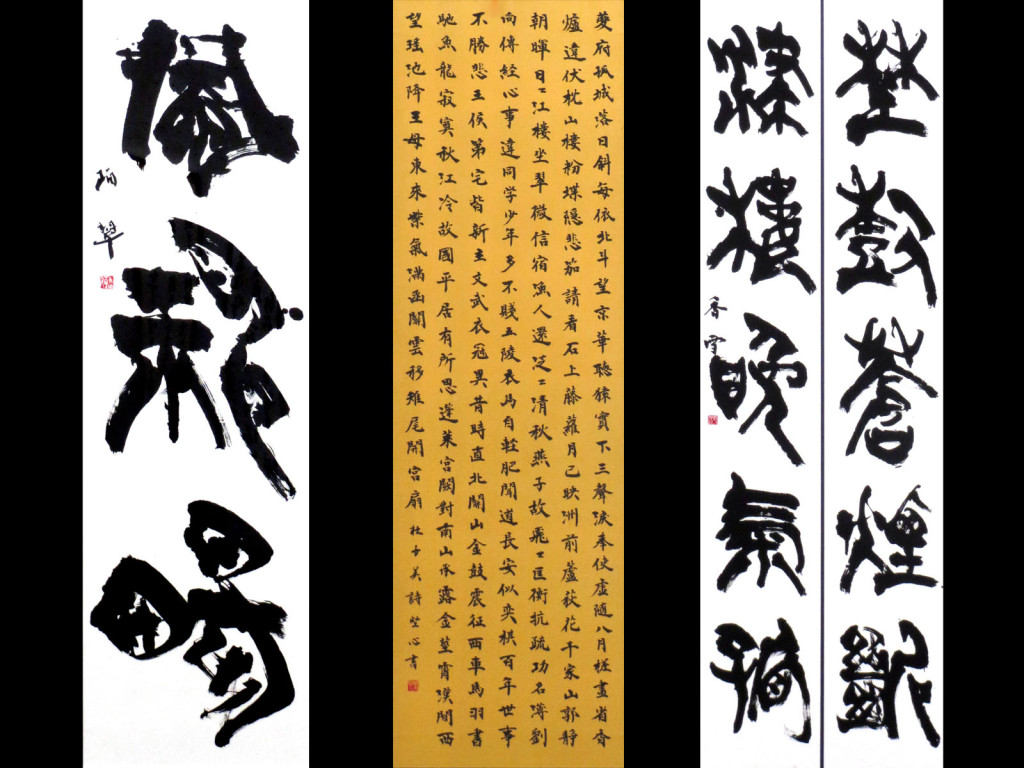 埜
蒼煙斷
樓晚氣
香雪
夔府孤城落日斜每依北斗望京華聴猿實下三聲淚奉使虛隨八月槎畫省香
爐違伏枕山樓粉堞隱悲笳請看石上藤蘿月已映洲前蘆荻花千家山郭靜
朝暉日〻江樓坐翠微信宿漁人還泛〻清秋燕子故飛〻匡衡抗疏功名薄劉
向傳經心事違同学少年多不賤五陵衣馬自輕肥聞道長安似奕棋百年世事
不勝悲王侯第宅皆新主文武衣冠異昔時直北關山金鼓震征西車馬羽書
馳魚龍寂寞秋江冷故國平居有所思蓬莱宮闕對南山承露金莖霄漢間西
望瑤池降王母東來紫氣滿函關雲移雉尾開宮扇 杜子美詩 埜心書
風彩
翠